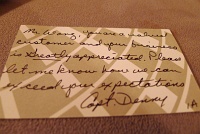 Mr. Wang, you are a valued
customer and your business
is greatly appreciated. Please
let me know how we can
exceed your expectations
Capt. Denny
1A